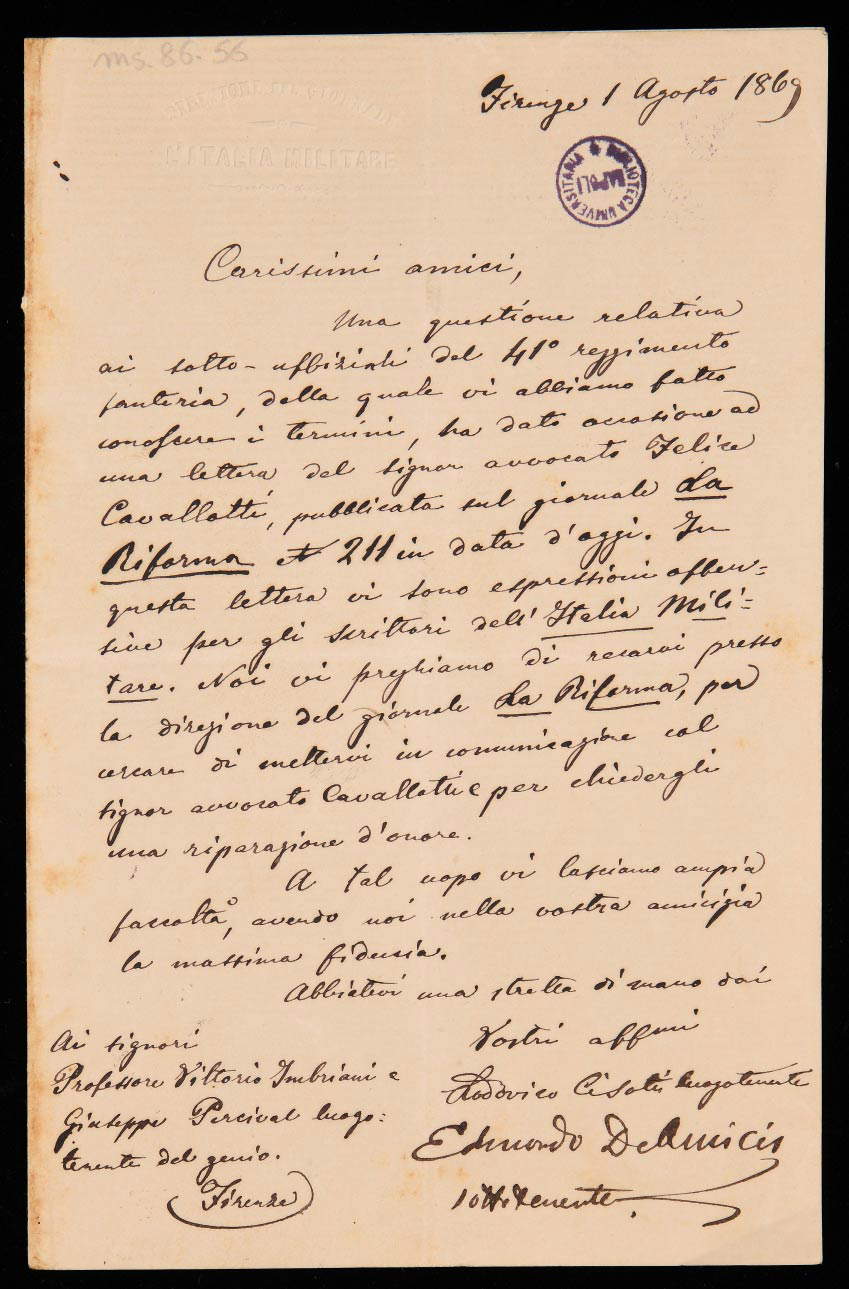 ms. 86.55
DIREZIONE DEL GIORNALE
L'ITALIA MILITARE
Firenze 1 Agosto 1869
BIBLIOTECA UNIVERSITARIA
NAPOLI
Carissimi amici,
Una questione relativa
ai sotto-uffiziali del 41º reggimento
fanteria, della quale vi abbiamo fatto
conoscere i termini, ha dato occasione ad
una lettera del signor avvocato Felice
Cavallotti, pubblicata sul giornale La
Riforma Nº 211 in data d'oggi. In
questa lettera vi sono espressioni offen=
sive per gli scrittori dell'Italia Mili=
tare. Noi vi preghiamo di recarvi presso
la direzione del giornale La Riforma, per
cercare di mettervi in comunicazione col
signor avvocato Cavallotti e per chiedergli
una riparazione d'onore.
A tal uopo vi lasciamo ampia
facoltà, avendo noi nella vostra amicizia
la massima fiducia.
Abbiatevi una stretta di mano dai
Vostri affmi
Lodovico Cisotti luogotenente
Edmondo De Amicis
sottotenente
Ai signori
Professore Vittorio Imbriani e
Giuseppe Percival luogo=
tenente del genio.
Firenze